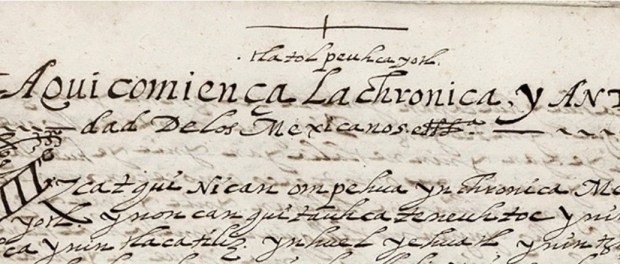 tlatol peuhcayotl.
Aqui comiença La chronica, y ANT
dad Delos Mexicanos
Izcatqui Nican ompehua ynchronica Me
yotl. ynoncan quitauhcateneuhtoc ynin
ca ynin tlacatiliz. ynhuel yehuatl ynin